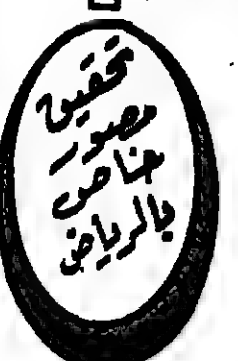 تحقيق
مصور
خاص
بالرياض